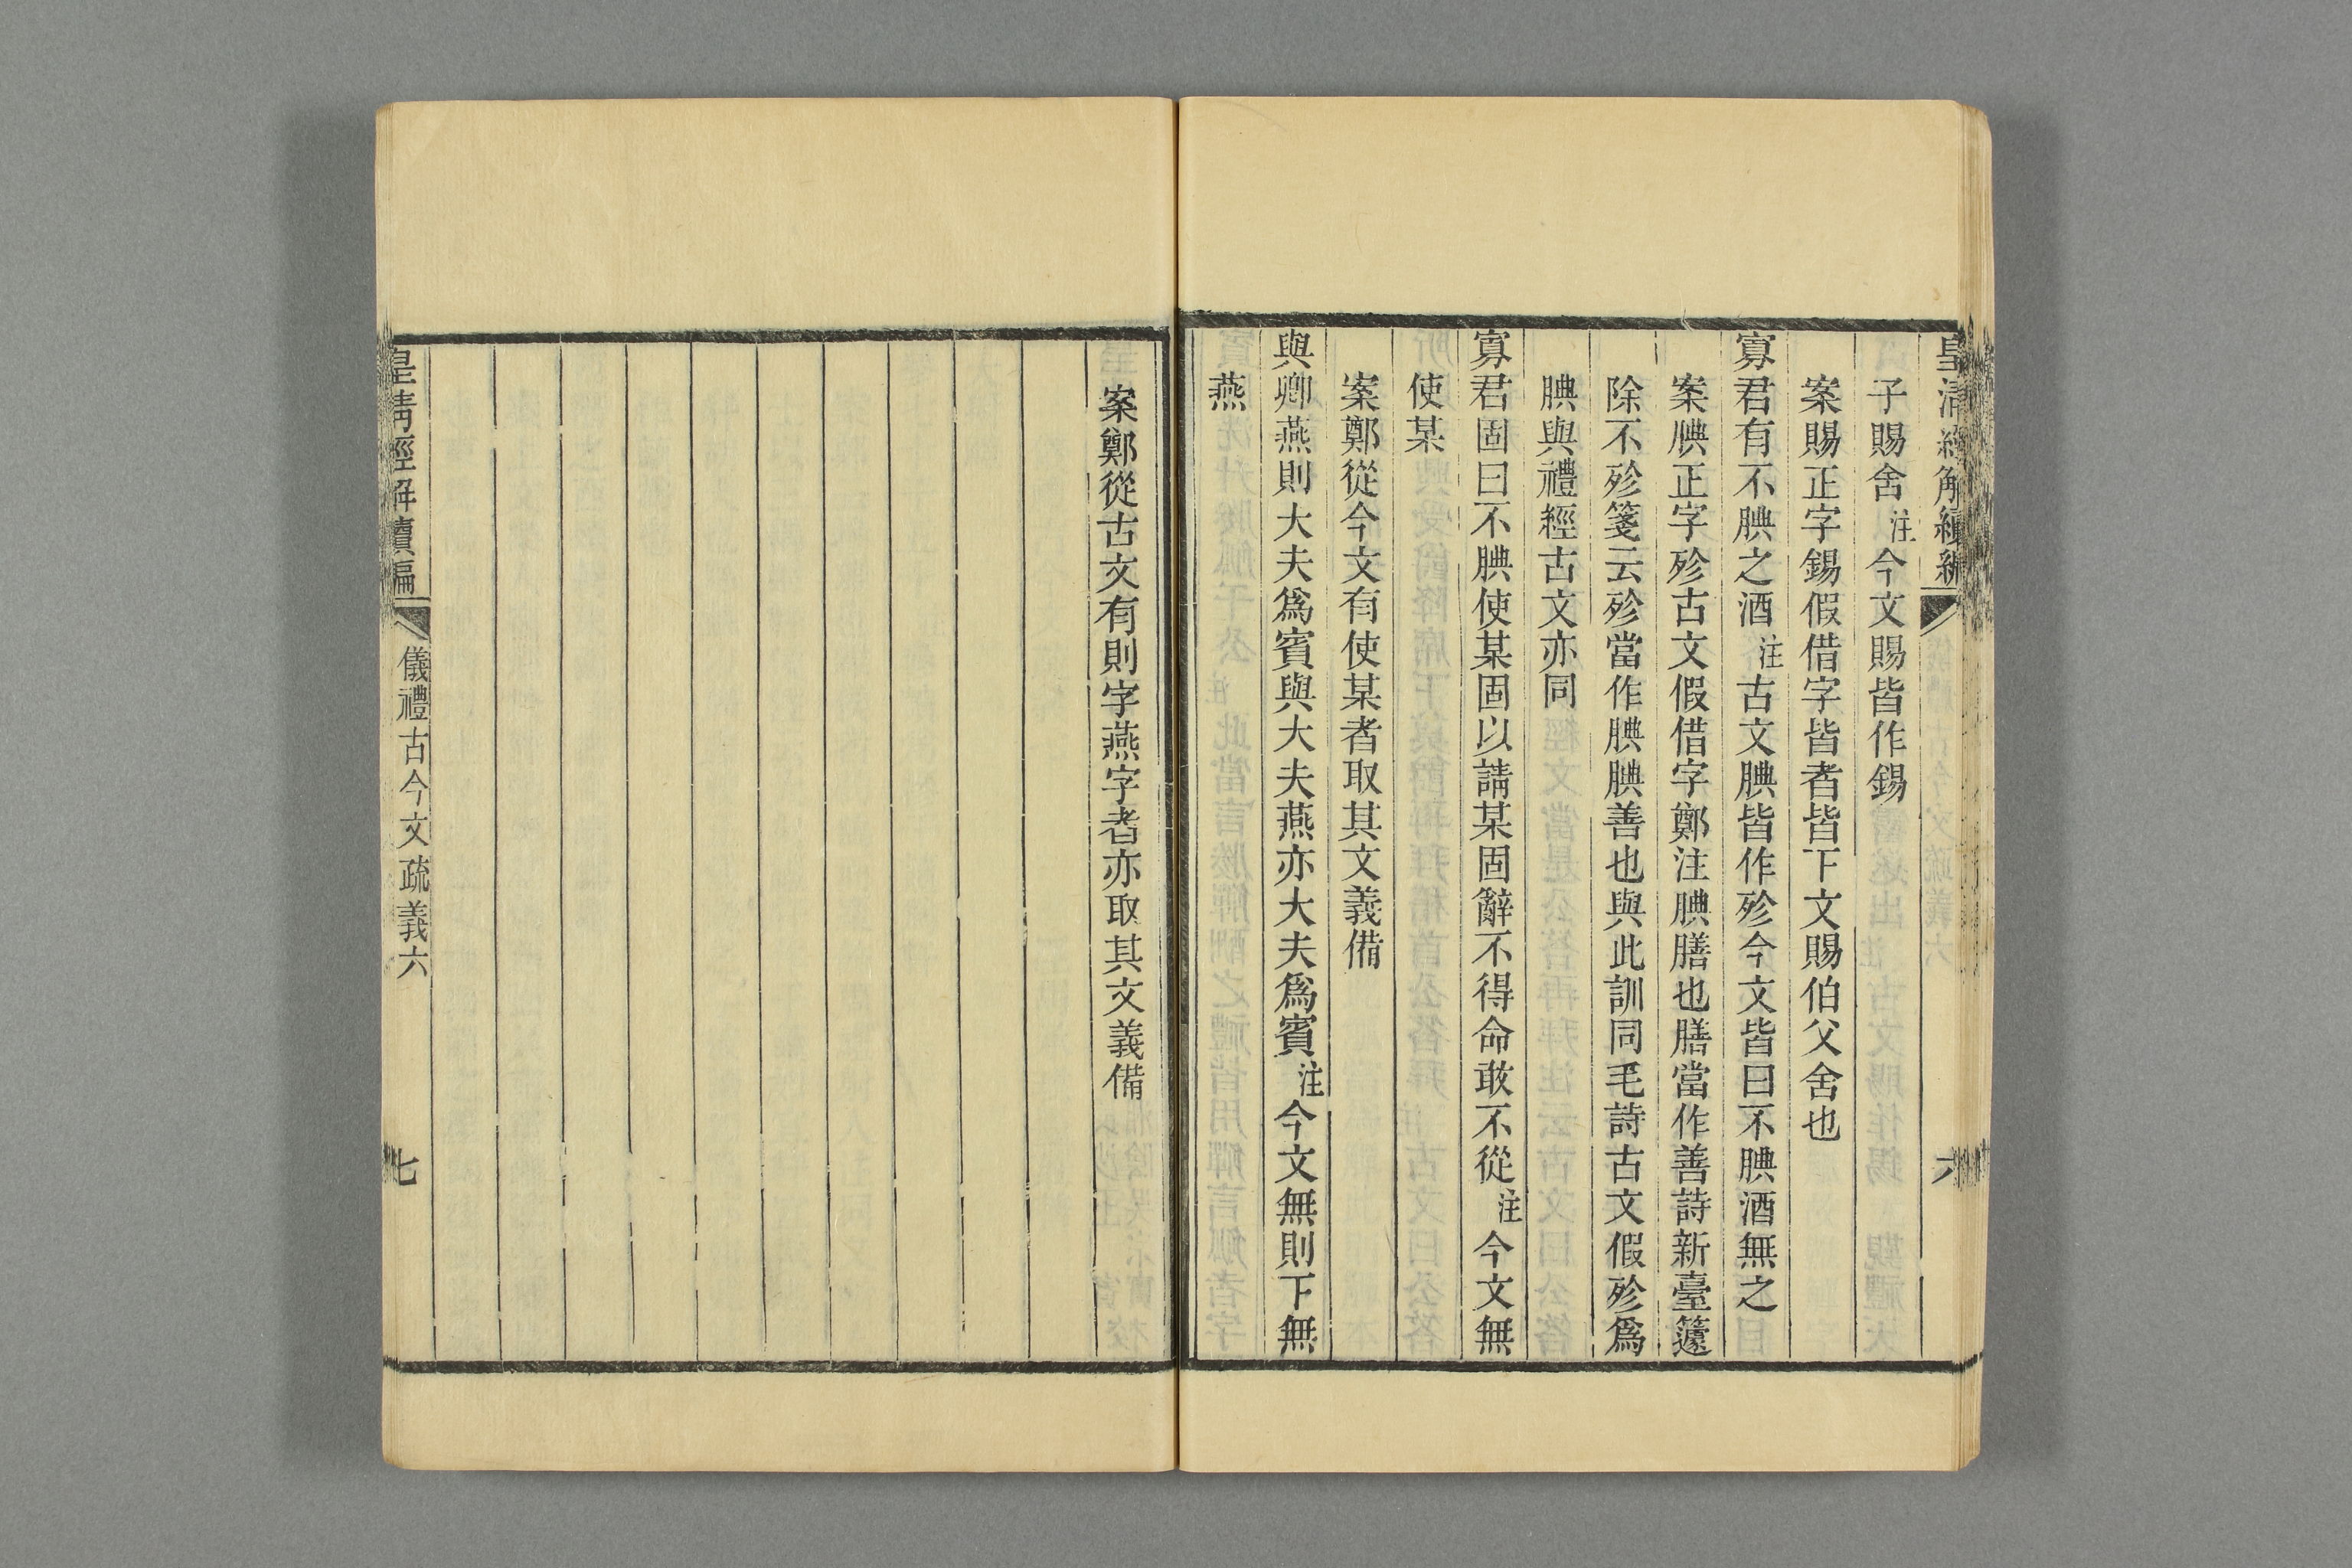 皇清經解續編
六
子賜舍注今文賜皆作錫
案賜正字錫假借字皆者皆下文賜伯父舍也
寡君有不腆之酒注古文腆皆作殄今文皆曰不腆酒無之
案腆正字殄古文假借字鄭注腆膳也膳當作善詩新臺籧
除不殄箋云殄當作腆腆善也與此訓同毛詩古文假殄爲
腆與禮經古文亦同
寡君固曰不腆使某固以請某固辭不得命敢不從注今文無
使某
案鄭從今文有使某者取其文義備
與卿燕則大夫爲賓與大夫燕亦大夫爲賓注今文無則下無
燕
案鄭從古文有則字燕字者亦取其文義備
皇清經解續編
儀禮古今文疏義六
七